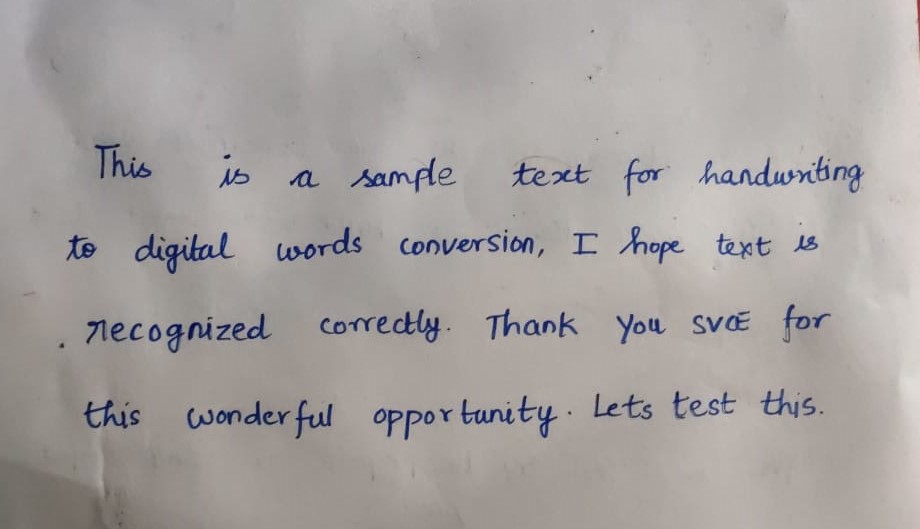 This is a sample text for handwriting
to digital words conversion, I hope text is
recognized correctly. Thank you SVCE for
this wonderful opportunity. Lets test this.